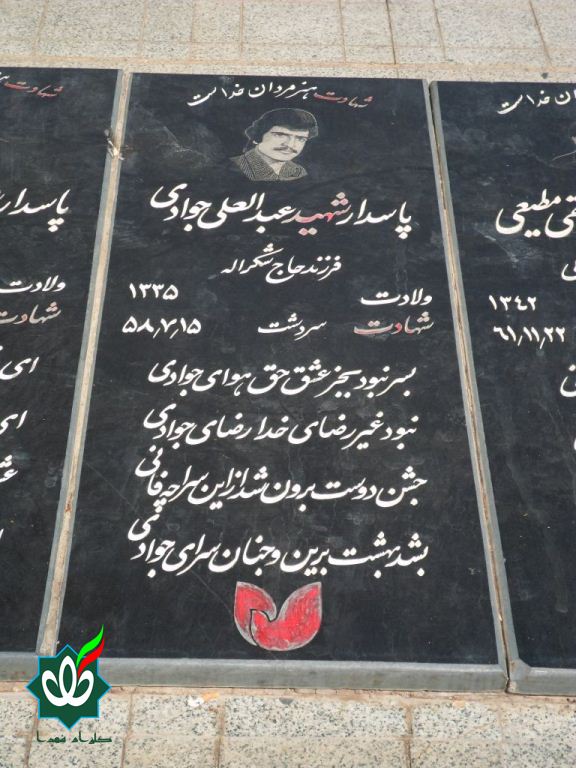 شهادت هنر مردان خداست
پاسدار شهید عبدالعلی جوادی
فرزند حاج شکراله
ولادت ۱۳۳۵
شهادت سردشت ۵۸٫۷٫۱۵
بسر نبود بجز عشق حق هوای جوادی
نبود غیر رضای خدا رضای جوادی
جشن دوست برون شد از این سراچه فانی
بشد بهشت برین و جنان سرای جوادی
شهادت
پاسدار
ولادت
شهادت
ای
ای
مردان خداست
مطیعی
۱۳۴۲
۶۱٫۱۱٫۲۲